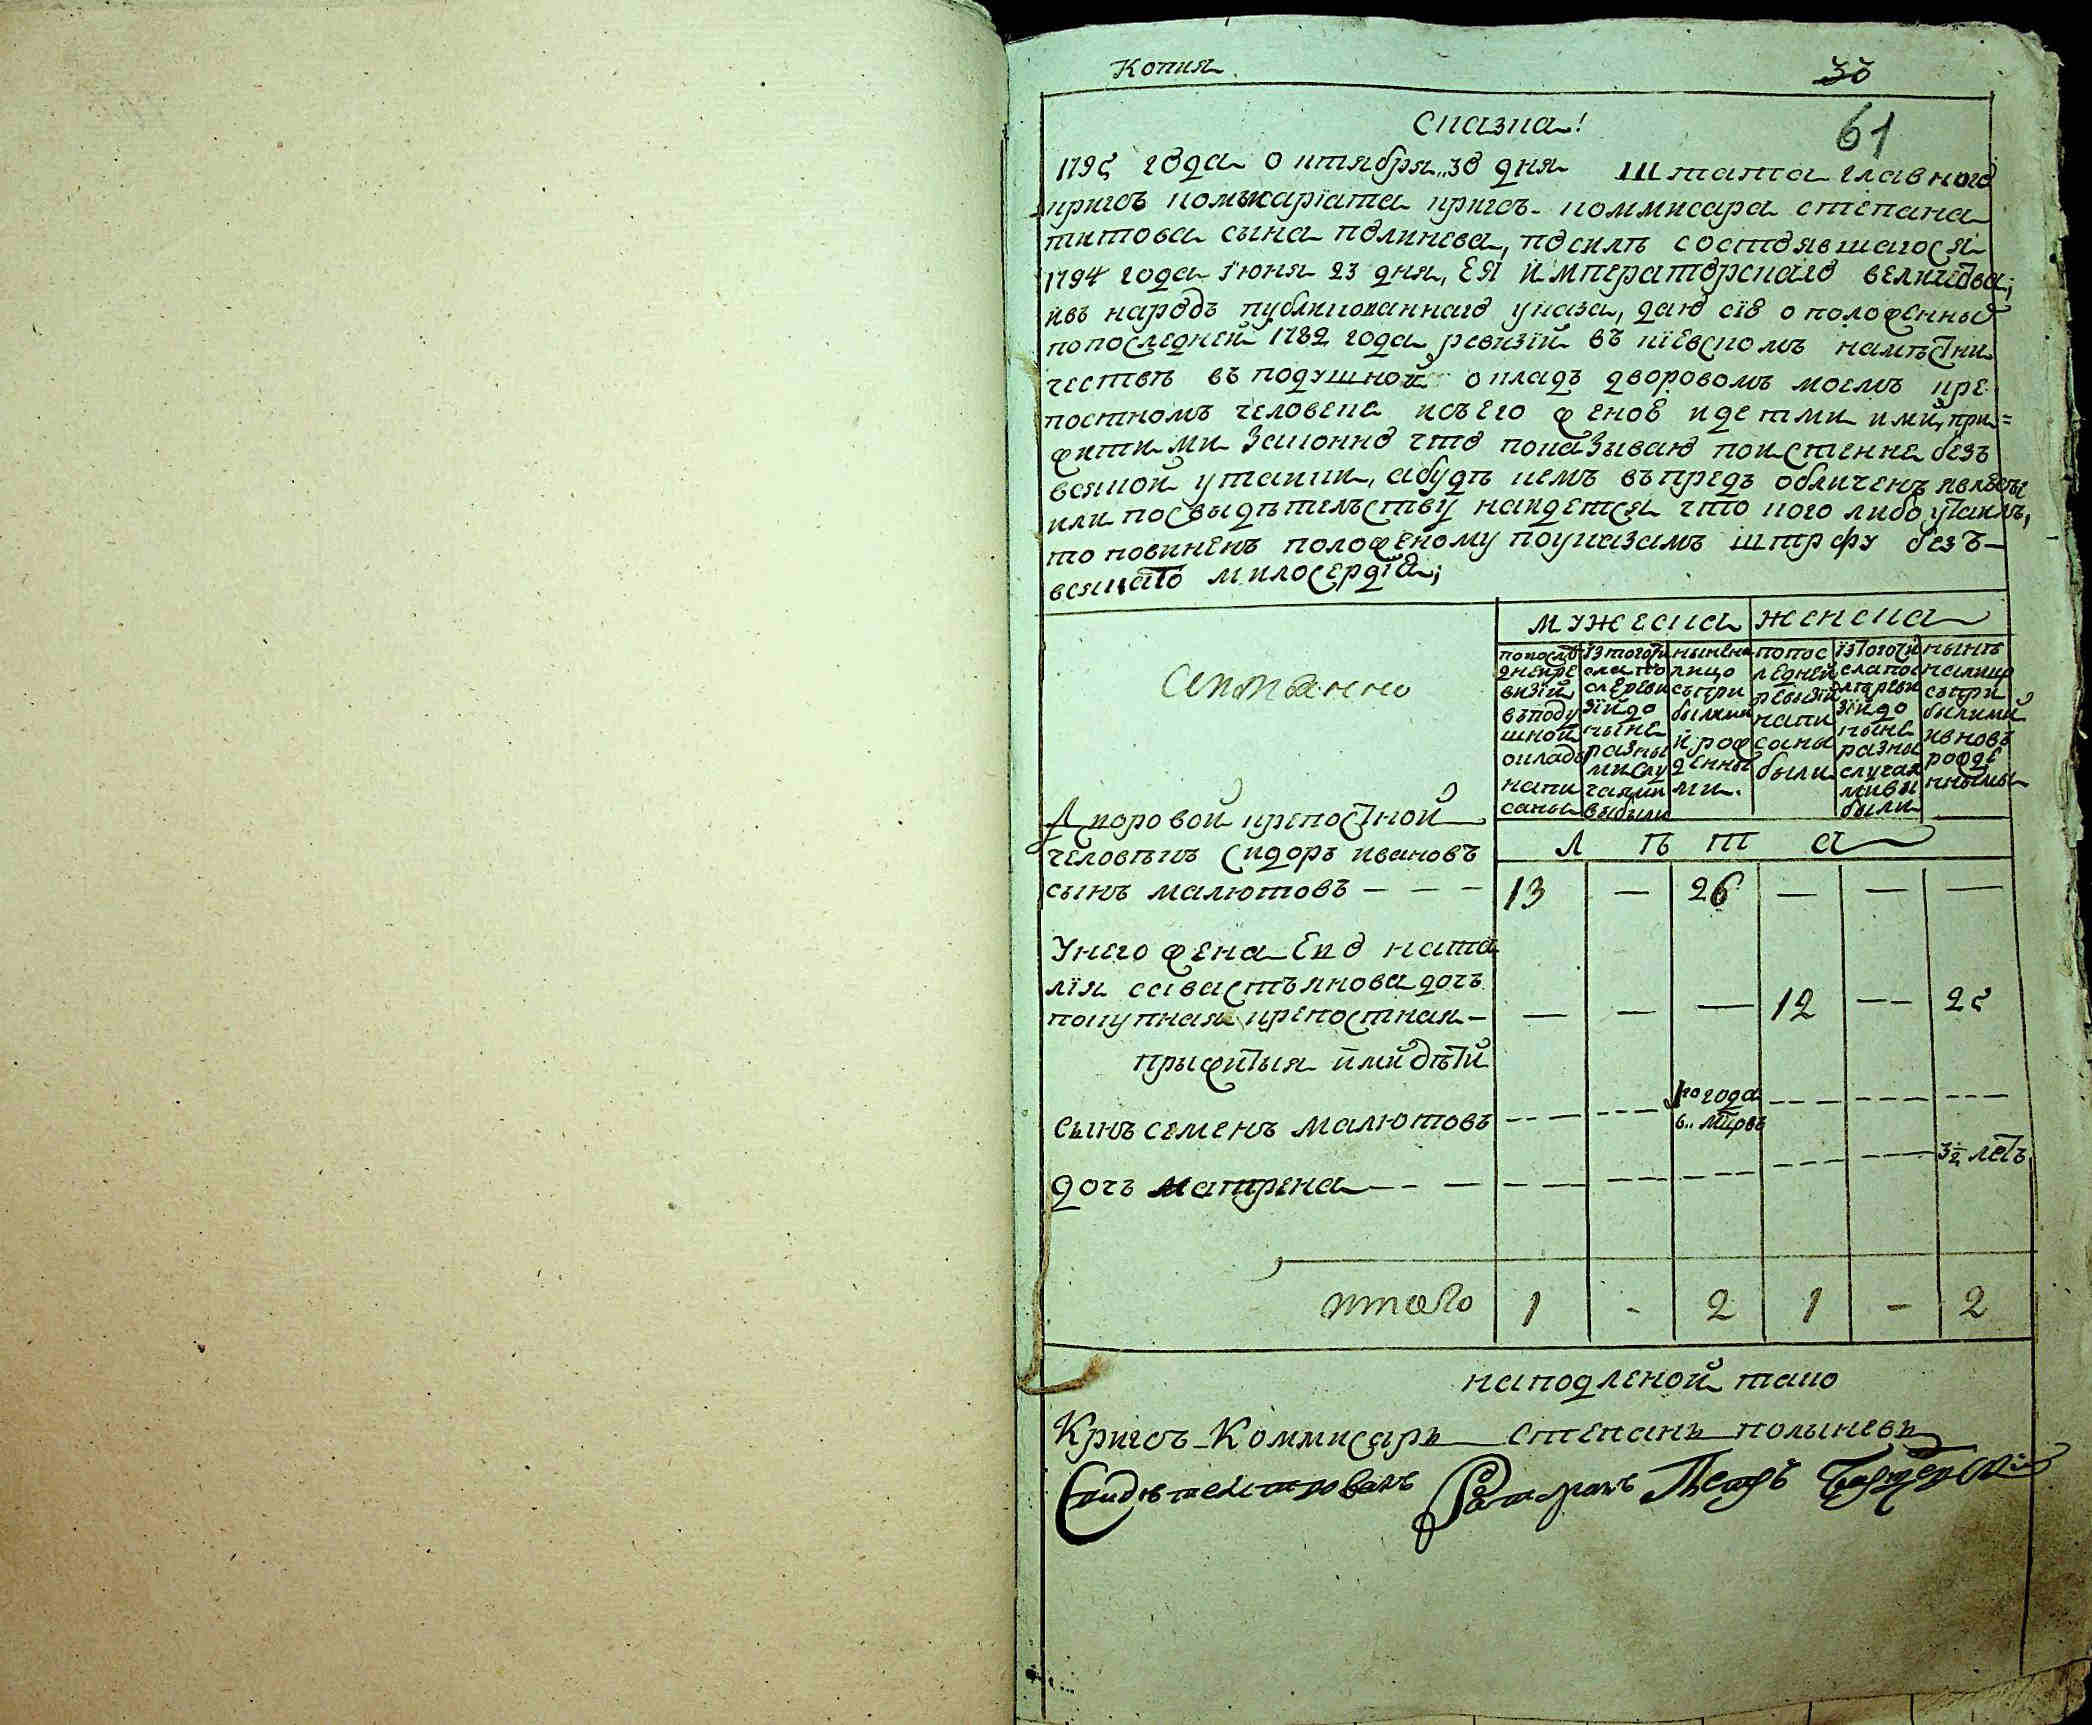 Копия
30
61
Сказка!
1795 года октября 30 дня Штата главного
кригсъ комисаріата кригсъ-коммисара степана
титова сына полинева, посилѣ состоявшагося
1794 года июня 23 дня, ЕЯ императорскаго величства,
ивъ народъ публикованнаго указа, даю сіѣ о положенны
попоследней 1782 года ревизій въ кіевскомъ намѣстни
чествѣ въ подушной окладъ дворовомъ моемъ кре
постномъ человеке исъего женоѣ идетми ими, при=
житими законно что показываю поистенне безъ
всякой утайки, абудѣ кемъ въпредъ обличенъ
или посвыдѣтелству найдетса что кого либо утаилъ,
то повиненъ положеному поуказамъ штрфу безъ-
всякато милосердїя;
мужеска женска
попослѣ дней ре визій въподу шной окладъ напи саны
изтогочи сла по слеревизій до ныне разны мислу чаями выбыли
ныне на лицо съпри былими й рожденны ми.
попос ледней ревизіи напи саны были
изтогочи сла пос лѣревизїй до ныне разны случая мивы были
нынѣ налицо съпри былими ивновъ рожде нными
Л ѣ т а
Дворовой крепостной
человѣкъ Сидоръ ивановъ
сынъ малютовъ - - - 13 — 26 — — —
Унего жена Его ната
лїя савастьянова дочъ
покупная крепостная - — — — 12 -- 25
прыжитыя ими дѣти
1го года
сынъ семенъ малютовъ --- --- 6.. мцовъ --- --- ---
3½ летъ
дочъ матрена
итого 1 - 2 1 - 2
наподленой тако
Кригсъ-Коммисаръ степанъ полыневъ
Свидѣтелстровалъ Ротмистръ Петръ